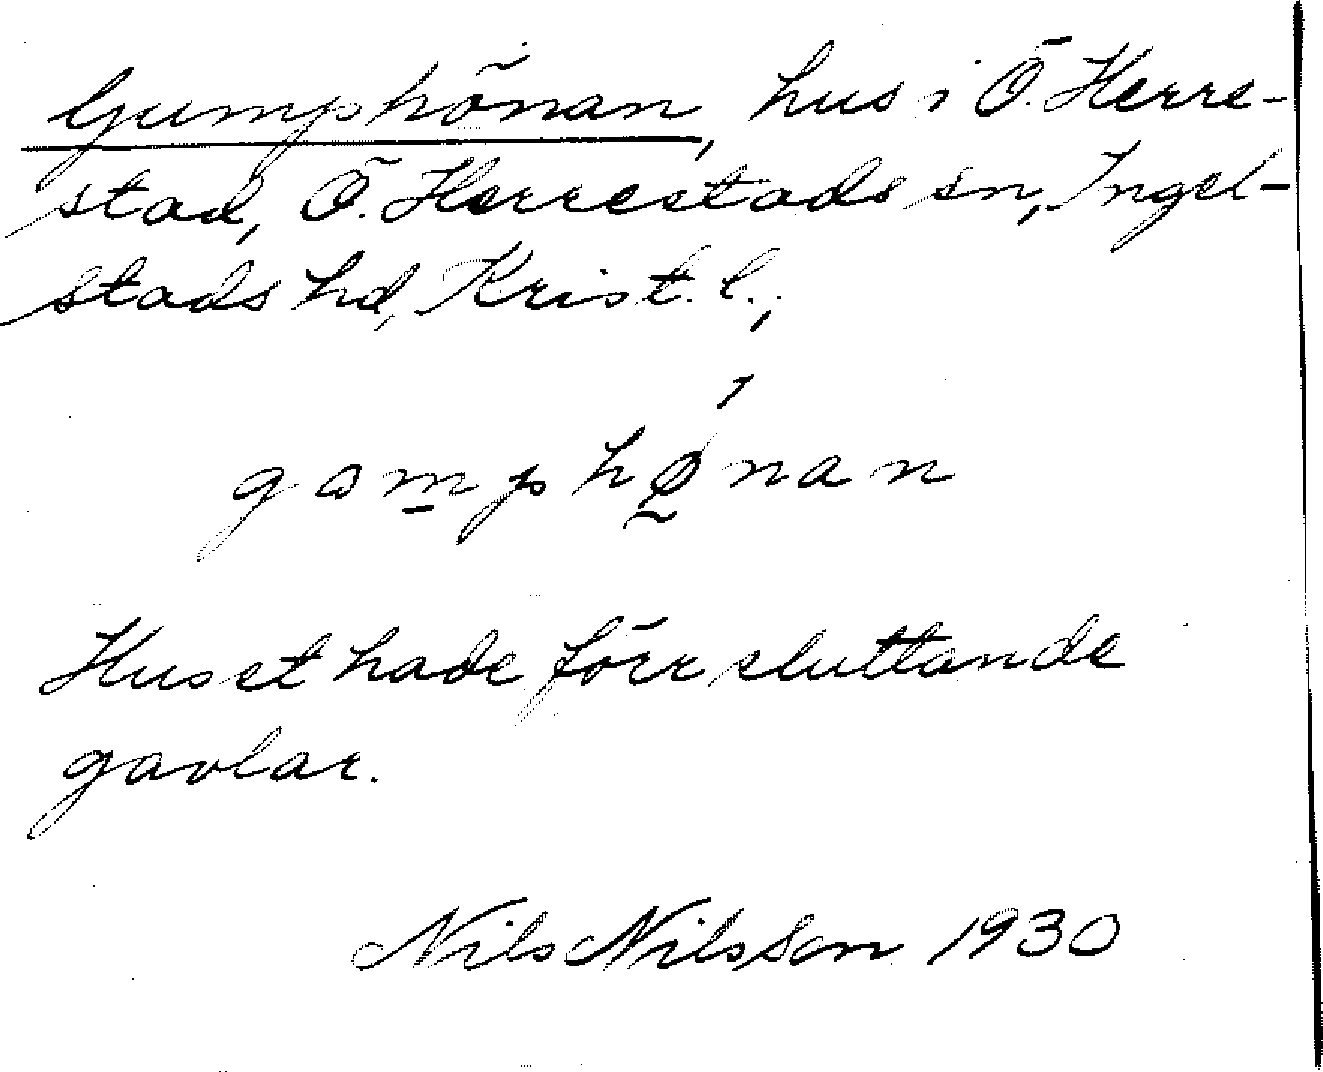 Gumphönan, hus i Ö. Herre-
stad, Ö. Herrestads sn, Ingel-
stads hd, Krist. l.,
gɷmphǿ̰nan
Huset hade förr sluttande
gavlar.
Nils Nilsson 1930